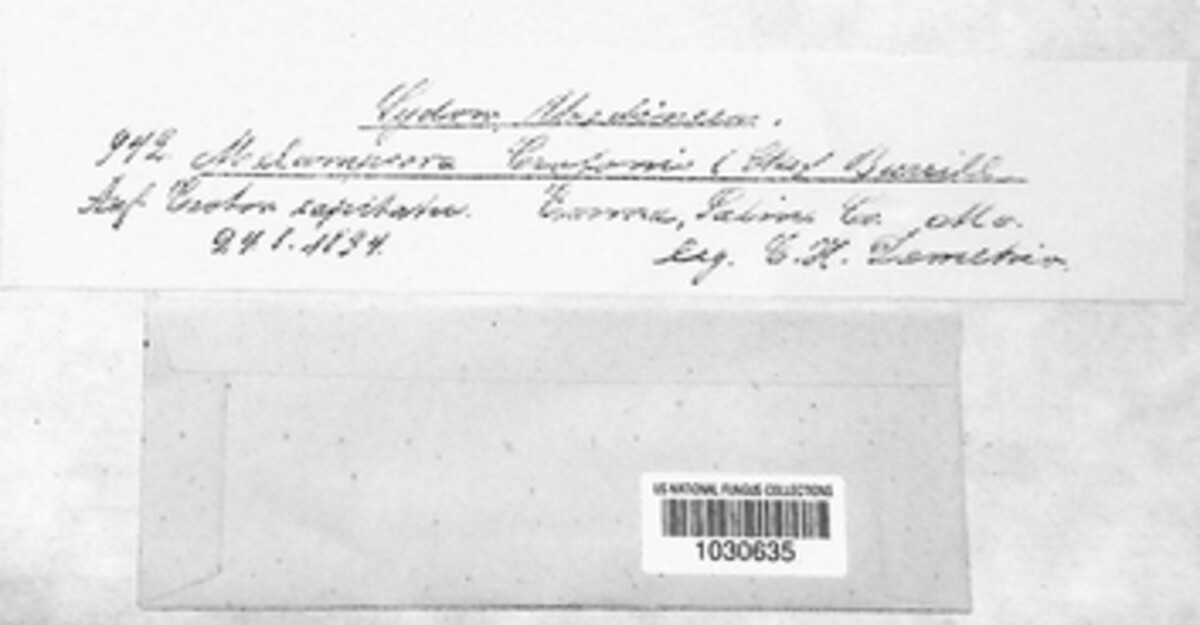 Sydow, Uredineen.
942. Melampsora Crotonis (Cke) Burrill
Auf Croton capitatus. Emma, Saline Co. Mo.
24.8.1894. leg. C.H. Demetrio.
US NATIONAL FUNGUS COLLECTIONS
1030635